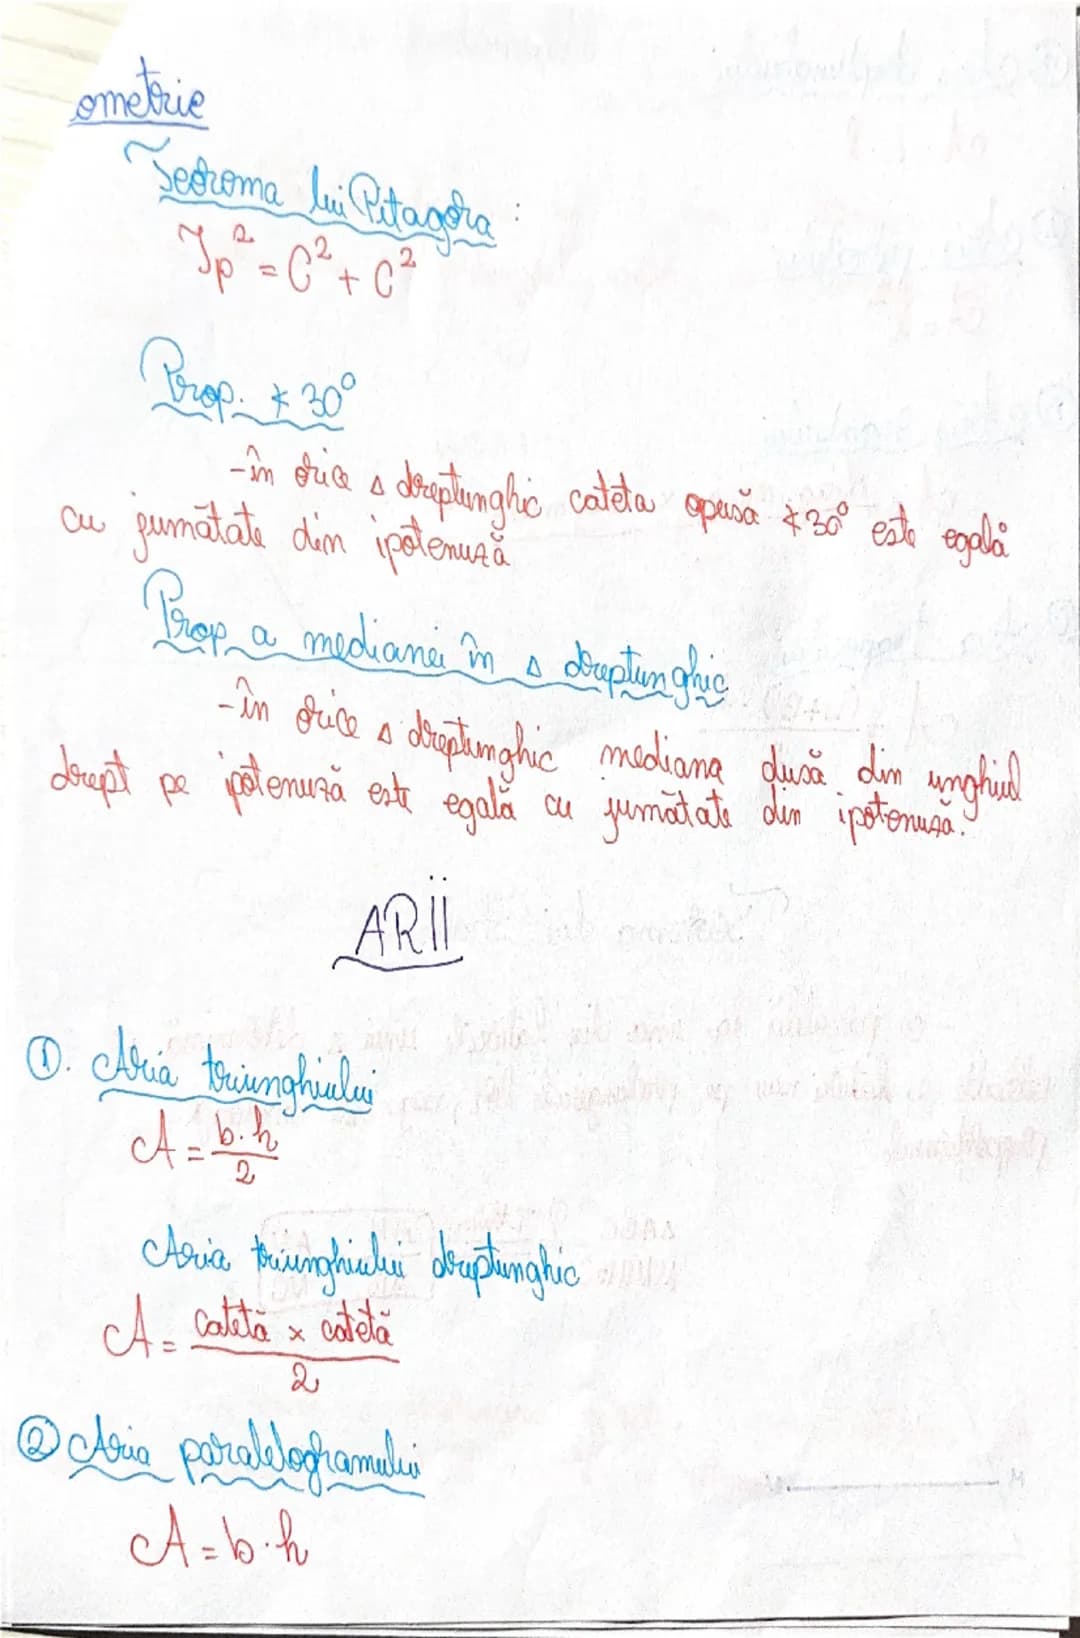 ometrie
Teorema lui Pitagora :
Ip² = C² + C²
Prop. ∢ 30°
- în orice △ dreptunghic cateta opusă ∢30° este egală
cu jumătate din ipotenuză
Prop a medianei în △ dreptunghic
- în orice △ dreptunghic mediana dusă din unghiul
drept pe ipotenuză este egală cu jumătate din ipotenusa.
ARii
①. Aria triunghiului
A = b·h / 2
Aria triunghiului dreptunghic
A = catetă × catetă / 2
② Aria paralelogramului
A = b·h